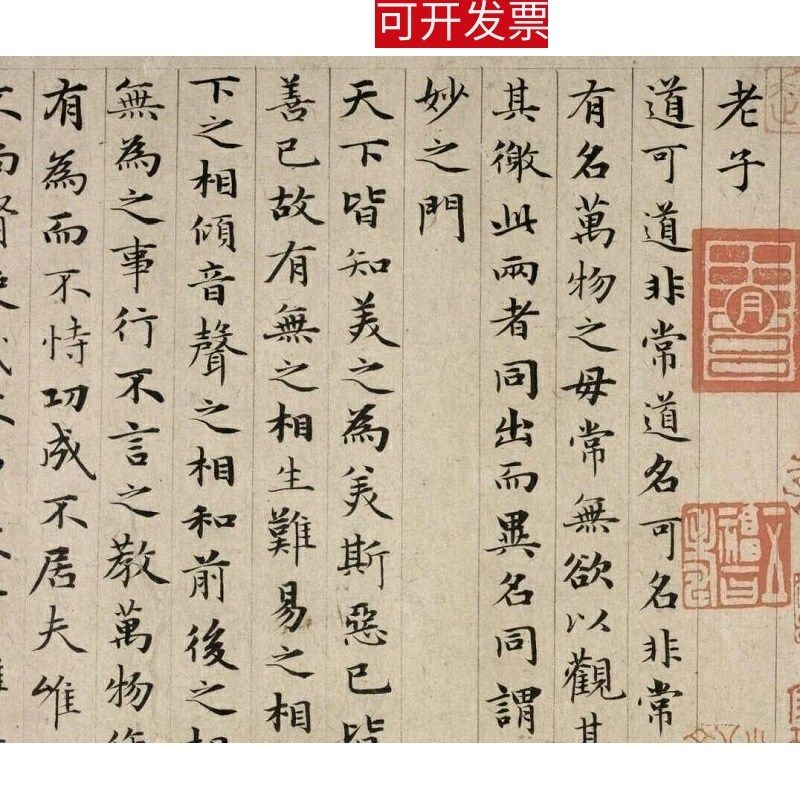 可开发票
老子
道可道非常道名可名非常
有名萬物之母常無欲以觀其
其徼此兩者同出而異名同謂
妙之門
天下皆知美之為美斯惡已皆
善已故有無之相生難易之相
下之相傾音聲之相和前後之相
無為之事行不言之教萬物作
有為而不恃功成不居夫惟